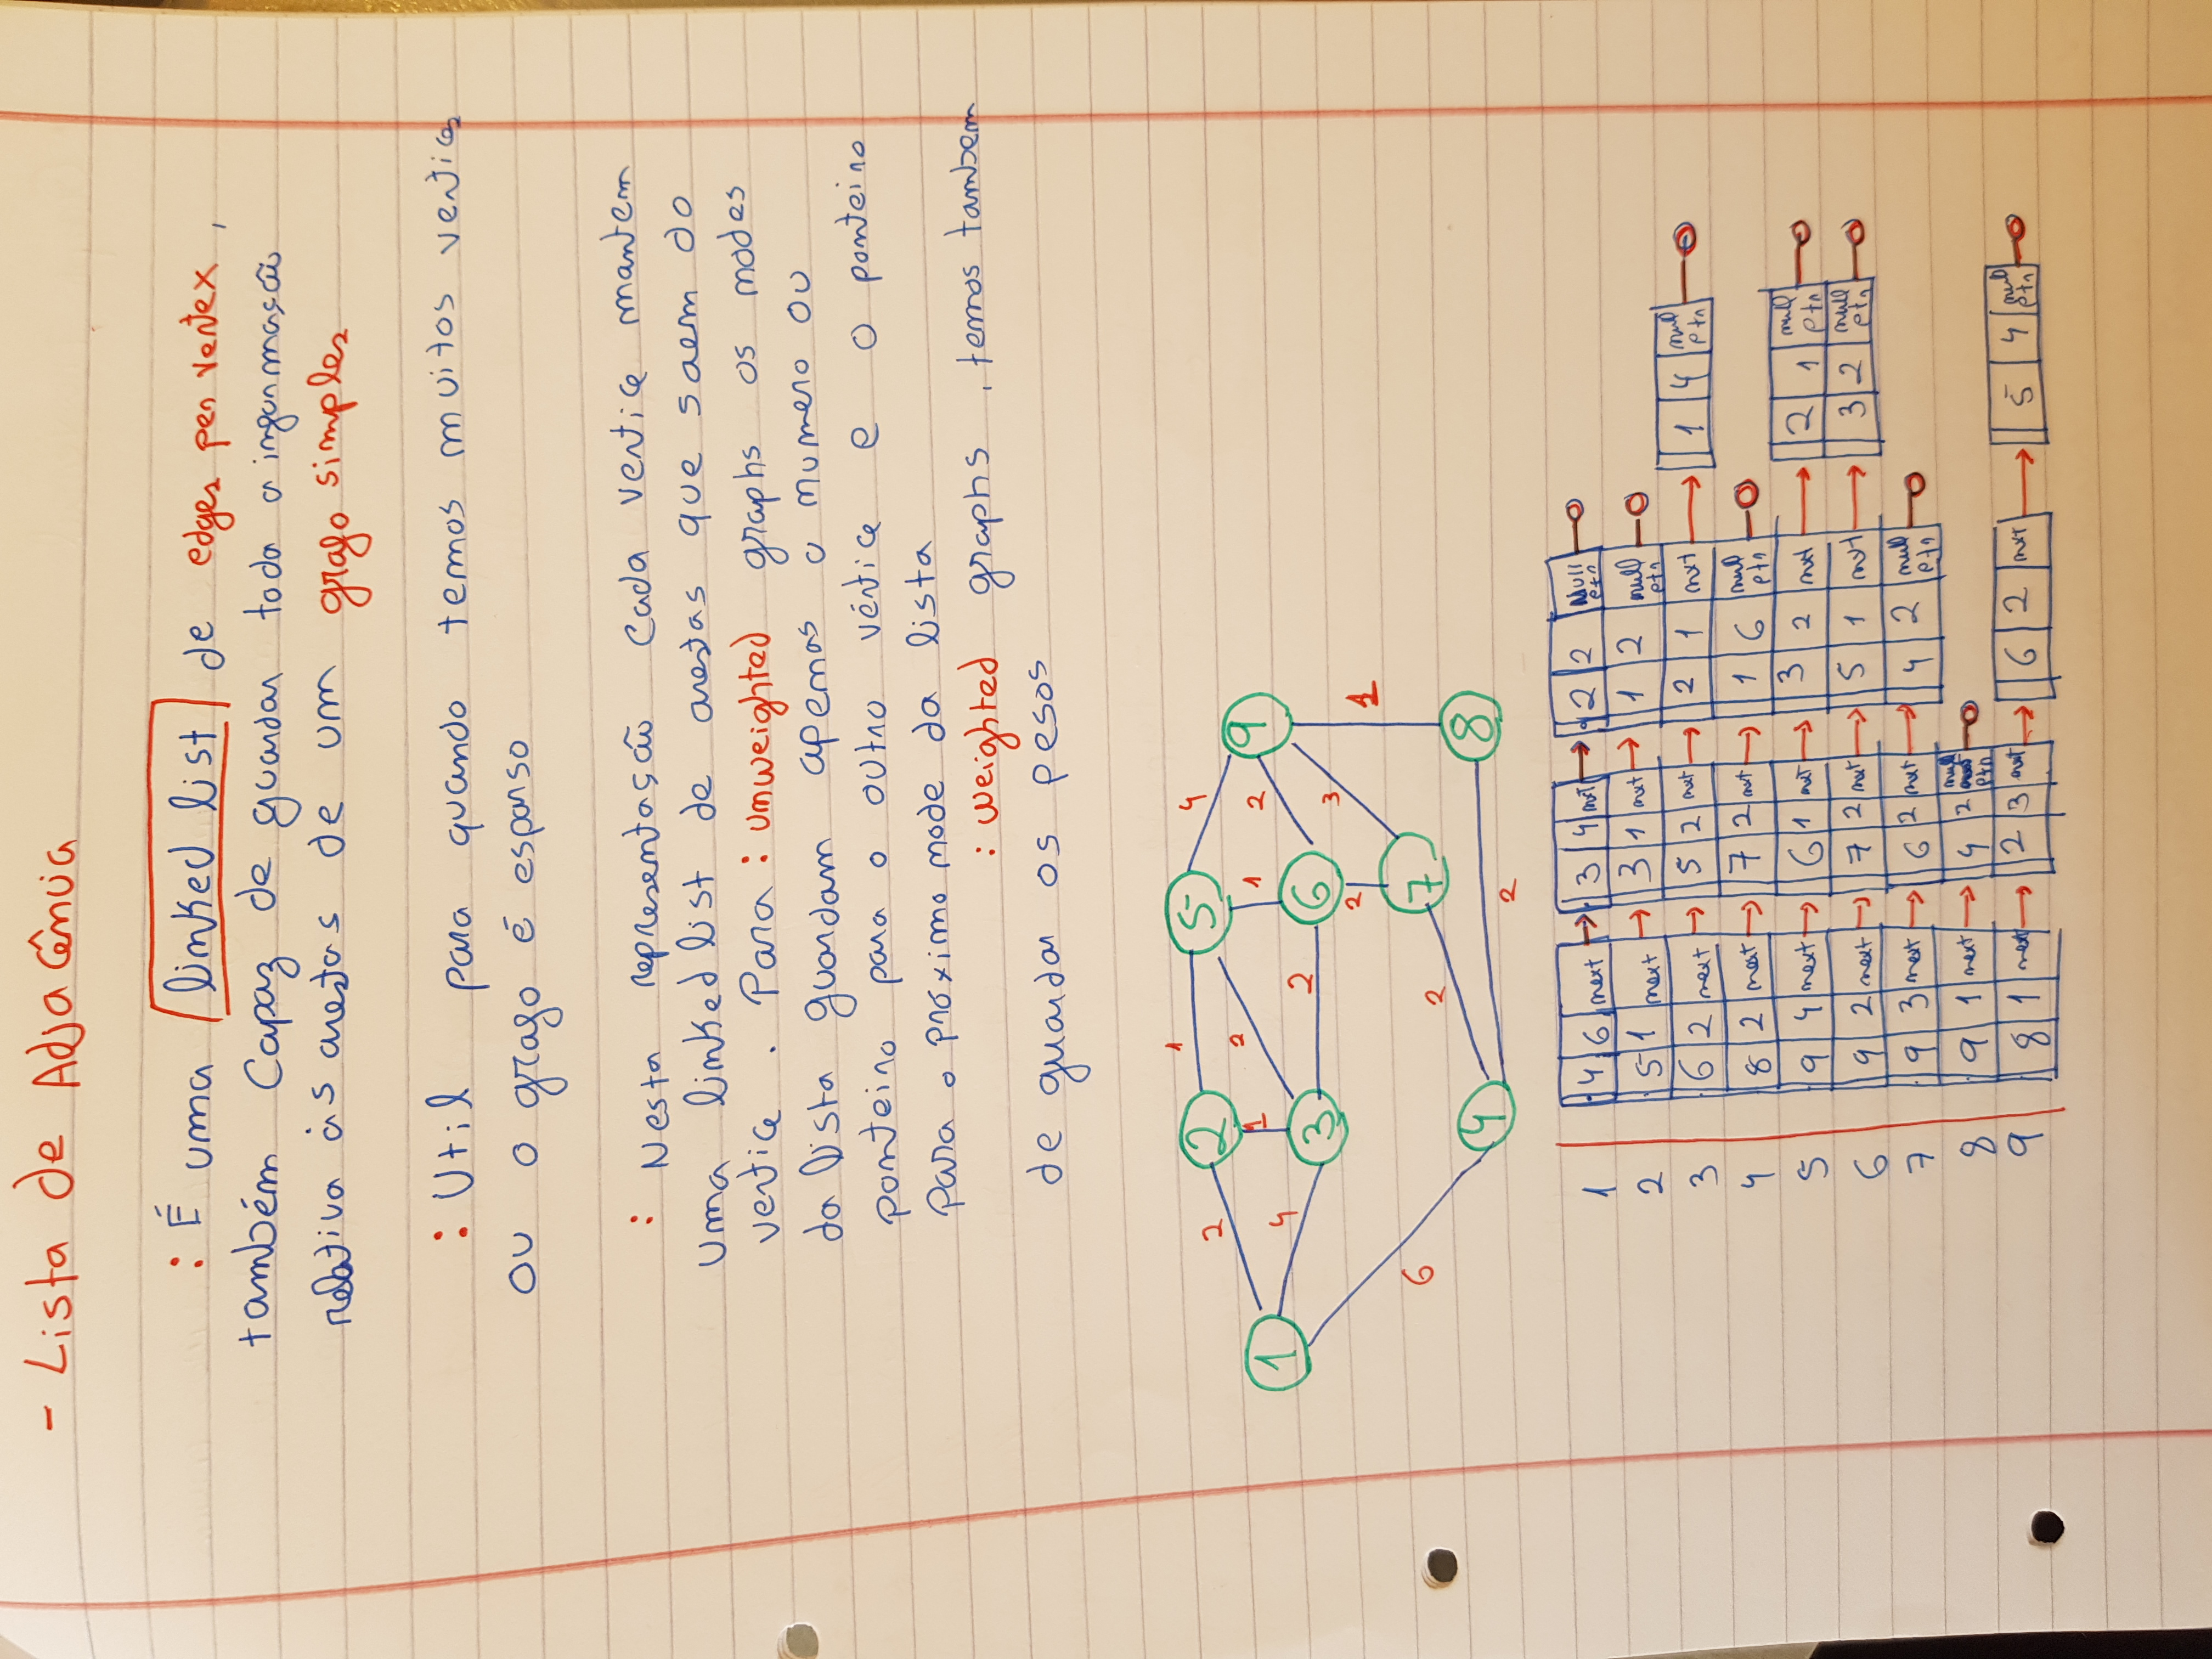 - Lista de Adjacência
: É uma linked list de edges per vertex,
também Capaz de guardar toda a informação
relativa às arestas de um grafo simples
: Util para quando temos muitos vertices
ou o grafo é esparso
: Nesta representação Cada vertice mantem
uma linked list de arestas que saem do
vertice. Para : unweighted graphs os nodes
da lista guardam apenas o numero ou
ponteiro para o outro vértice e o ponteiro
para o próximo node da lista
: weighted graphs, temos tambem
de guardar os pesos
1
2 2 5 4
1 2 1 2 9
1 4 3 2 6
2 3 1
6 2 7
4 8
2
1 4 6 next 3 4 nxt 2 2 Null ptr
2 5 1 next 3 1 nxt 1 2 null ptr
3 6 2 next 5 2 nxt 2 1 nxt 1 4 null ptr
4 8 2 next 7 2 nxt 1 6 null ptr
5 9 4 next 6 1 nxt 3 2 nxt 2 1 null ptr
6 9 2 next 7 2 nxt 5 1 nxt 3 2 null ptr
7 9 3 next 6 2 nxt 4 2 null ptr
8 9 1 next 4 2 null ptr
9 8 1 next 2 3 nxt 6 2 nxt 5 4 null ptr